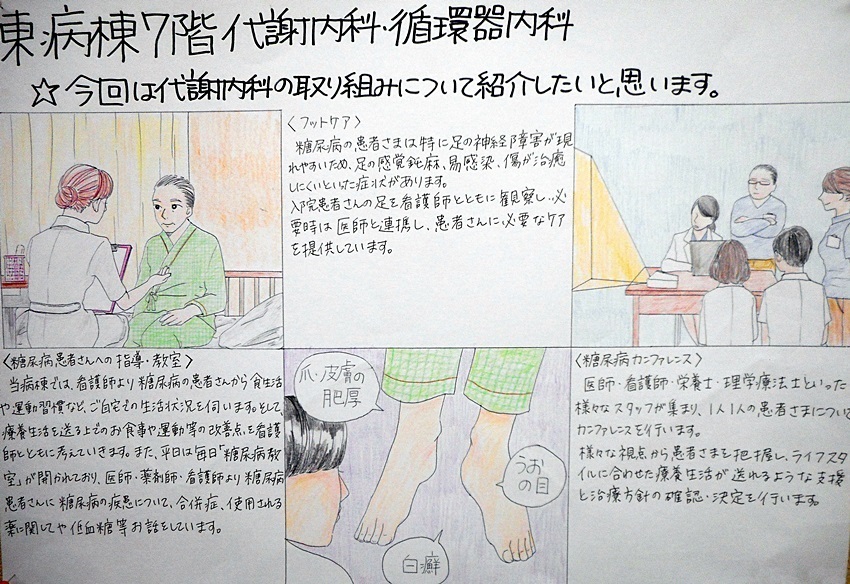 東病棟7階代謝内科・循環器内科
☆今回は代謝内科の取り組みについて紹介したいと思います。
〈フットケア〉
糖尿病の患者さまは特に足の神経障害が現
れやすいため、足の感覚鈍麻、易感染、傷が治癒
しにくいといった症状があります。
入院患者さんの足を看護師とともに観察し、必
要時は医師と連携し、患者さんに必要なケア
を提供しています。
〈糖尿病患者さんへの指導・教室〉
当病棟では、看護師より糖尿病の患者さんから食生活
や運動習慣など、ご自宅での生活状況を伺います。そして、
療養生活を送る上でのお食事や運動等の改善点を看護
師とともに考えていきます。また、平日は毎日「糖尿病教
室」が開かれており、医師・薬剤師・看護師より糖尿病
患者さんに糖尿病の疾患について、合併症、使用される
薬に関してや低血糖等お話をしています。
爪・皮膚の
肥厚
うお
の目
白癬
〈糖尿病カンファレンス〉
医師・看護師・栄養士・理学療法士といった
様々なスタッフが集まり、1人1人の患者さまについて
カンファレンスを行います。
様々な視点から患者さまを把握し、ライフスタ
イルに合わせた療養生活が送れるような支援
と治療方針の確認・決定を行います。